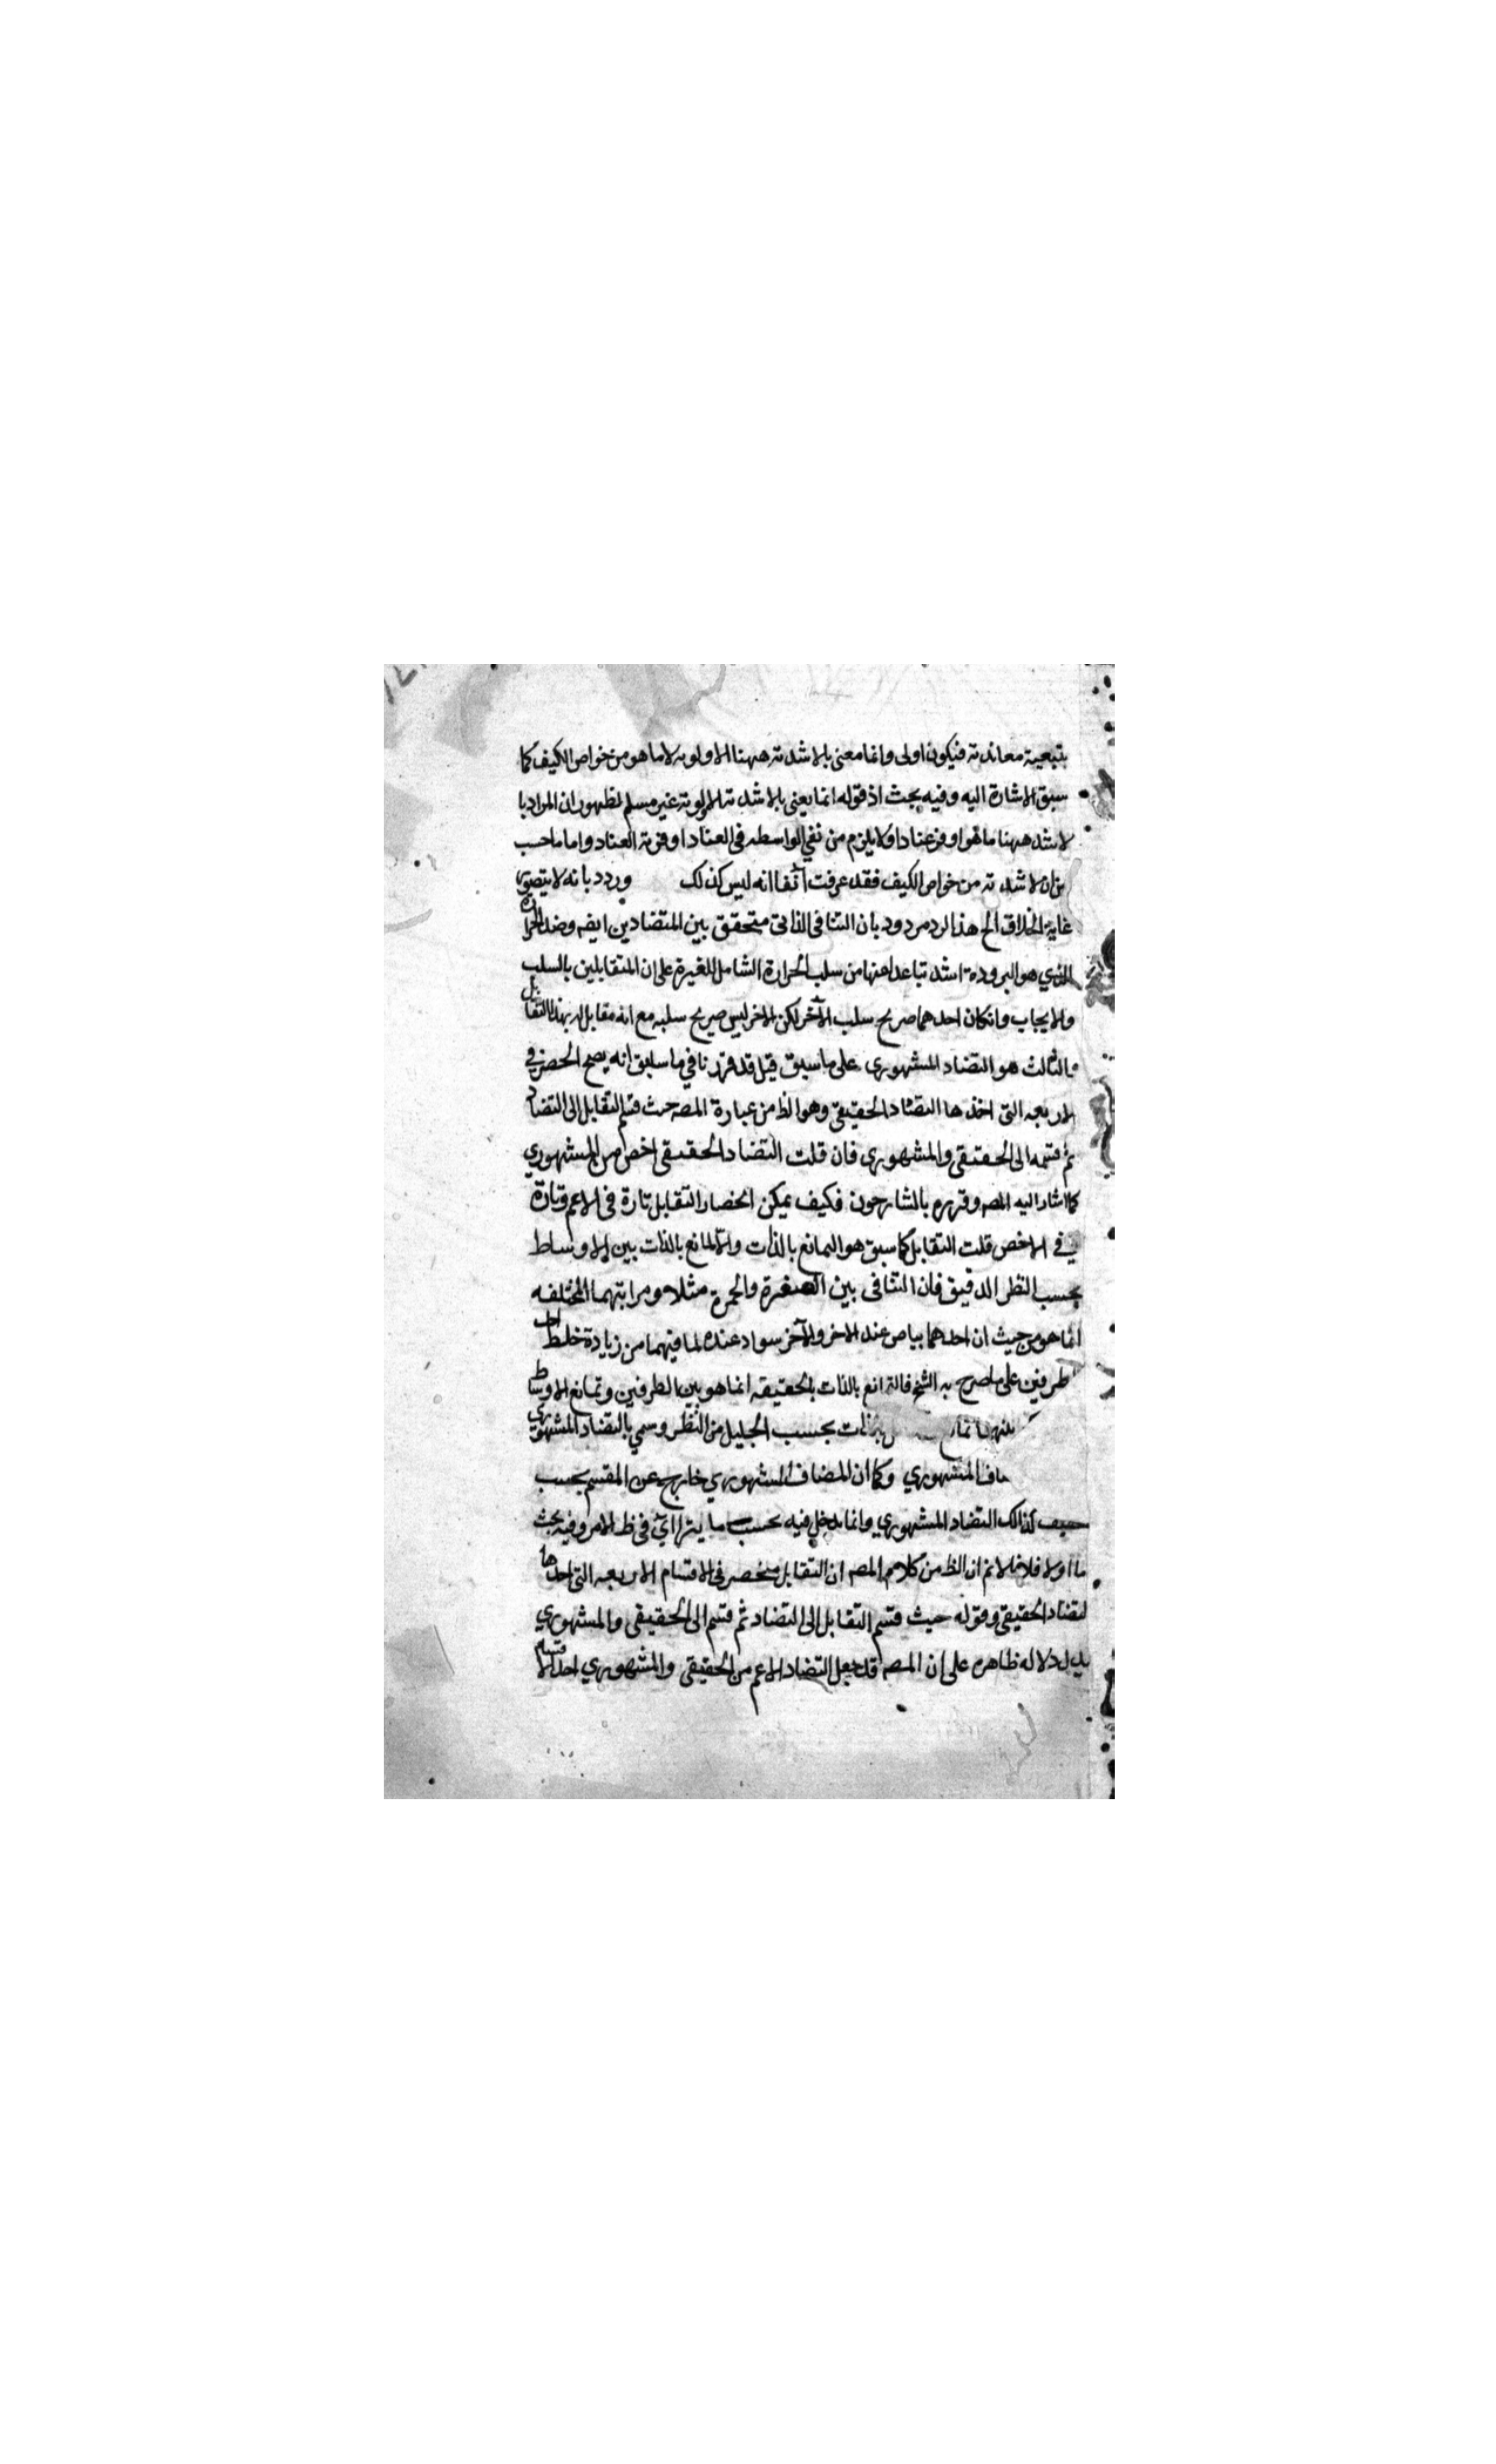 بتبعية معاندته فيكون اولى وانما معنى بالاشدته ههنا الاولويه لا ما هو من خواص الكيف كما
سبق الاشارة اليه وفيه بحث اذ قوله انما يعنى بالاشدته الاولويته غير مسلم لظهور ان المراد با
لاشد ههنا ما هو اوفر عنادا ولا يلزم من نفي الواسطه فى العناد اوفرية العناد واما ما حسب
من ان لاشدته من خواص الكيف فقد عرفت آنفا انه ليس كذلك وردد بانه لا يتصور
غاية الخلاف الخ هذا الرد مردود بان التنافى الذاتى متحقق بين المتضادين ايضه وضد الحرارة
الذي هو البرودة اشد تباعدا عنها من سلب الحرارة الشامل للغيرة على ان المتقابلين بالسلب
والايجاب وانكان احدهما صريح سلب الآخر لكن الاخر ليس صريح سلبه مع انه مقابل له بهذا التقابل
والثالث هو التضاد المشهورى على ما سبق قيل قد قررنا في ما سبق انه يصح الحصر في
الاربعه التى احدها التضاد الحقيقى وهو الظ من عبارة المصه حيث قسم التقابل الى التضاد
ثم قسمه الى الحقيقى والمشهورى فان قلت التضاد الحقيقى اخص من المشهوري
كما اشار اليه المصه وقرره بالشارحون فكيف يمكن انحصار التقابل تارة فى الاعم وتارة
في الاخص قلت التقابل كما سبق هو التمانع بالذات ولا تمانع بالذات بين الاوساط
بحسب النظر الدقيق فان التنافى بين الصغرة والحمرة مثلا ومراتبهما المختلفه
انما هو من حيث ان احدهما بياض عند الاخر والآخر سواد عنده لما فيهما من زيادة خلط احد
لطرفين على ما صرح به الشيخ فالتمانع بالذات بالحقيقه انما هو بين الطرفين وتمانع الاوساط
بالذات بحسب الجليل من النظر وسمي بالتضاد المشهوري
المشهوري وكما ان المضاف المشهوري خارج عن المقسم بحسب
كذلك التضاد المشهوري وانما يدخل فيه بحسب ما يترااي فى ظ الامر وفيه بحث
اما اولا فلانا لانم ان الظ من كلام المصه ان التقابل منحصر فى الاقسام الاربعه التى احدها
لتضاد الحقيقى وقوله حيث قسم التقابل الى التضاد ثم قسم الى الحقيقى والمشهوري
يدل دلاله ظاهره على ان المصه قد جعل التضاد الاعم من الحقيقى والمشهوري احد الاقسام